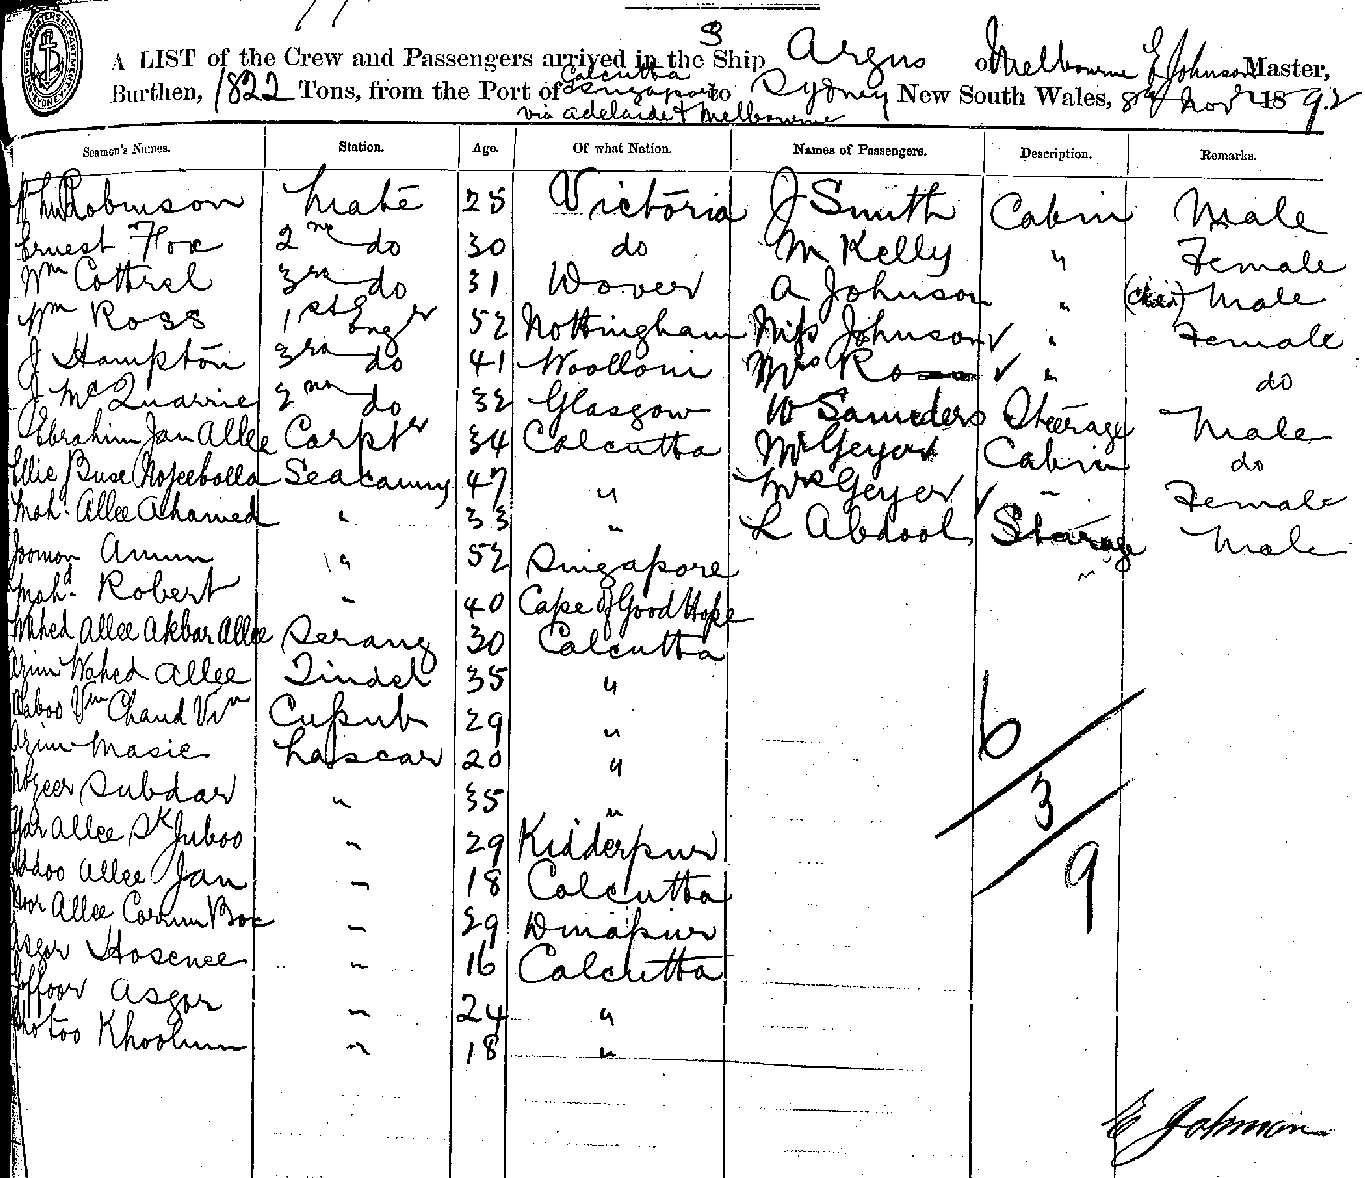 S
A LIST of the Crew and Passengers arrived in the Ship Argus of Melbourne E Johnson Master,
Burthen, 1822 Tons, from the Port of Calcutta Singapore to Sydney New South Wales, 8th Novr 1892
via Adelaide & Melbourne
Seamen's Names. Station. Age. Of what Nation. Names of Passengers. Description. Remarks.
Robinson Mate 25 Victoria J Smith Cabin Male
Ernest Fox 2nd do 30 do M Kelly " Female
Wm Cottrel 3rd do 31 Dover A Johnson " (Child) Male
Wm Ross 1st Enger 52 Nottingham Miss Johnson " Female
J Hampton 3rd do 41 Woolloni Mrs Ross " do
J McQuarrie 2nd do 32 Glasgow W Saunders Steerage Male
Ebrahim Jan Allee Carptr 34 Calcutta Mr Geyer Cabin do
Ellie Buse Nojeebolla Seacunny 47 " Mrs Geyer " Female
Mahd Allee Ahamed " 33 " L Abdool Steerage Male
Joomon Amum " 52 Singapore "
Mahd Robert " 40 Cape of Good Hope
Wahed Allee Akbar Allee Serang 30 Calcutta
Azim Wahed Allee Tindel 35 "
Baboo Vin Chand Vin Cupub 29 "
Azim Masie Lascar 20 "
Nozeer Subdar " 35 "
Allee Sk Juboo " 29 Kidderpur
Abdoo Allee Jan " 18 Calcutta
Noor Allee Corrum Box " 29 Dinapur
Asgar Hosenee " 16 Calcutta
Goffoor Asgor " 24 "
Khoolum " 18 "
6
3
9
E Johnson